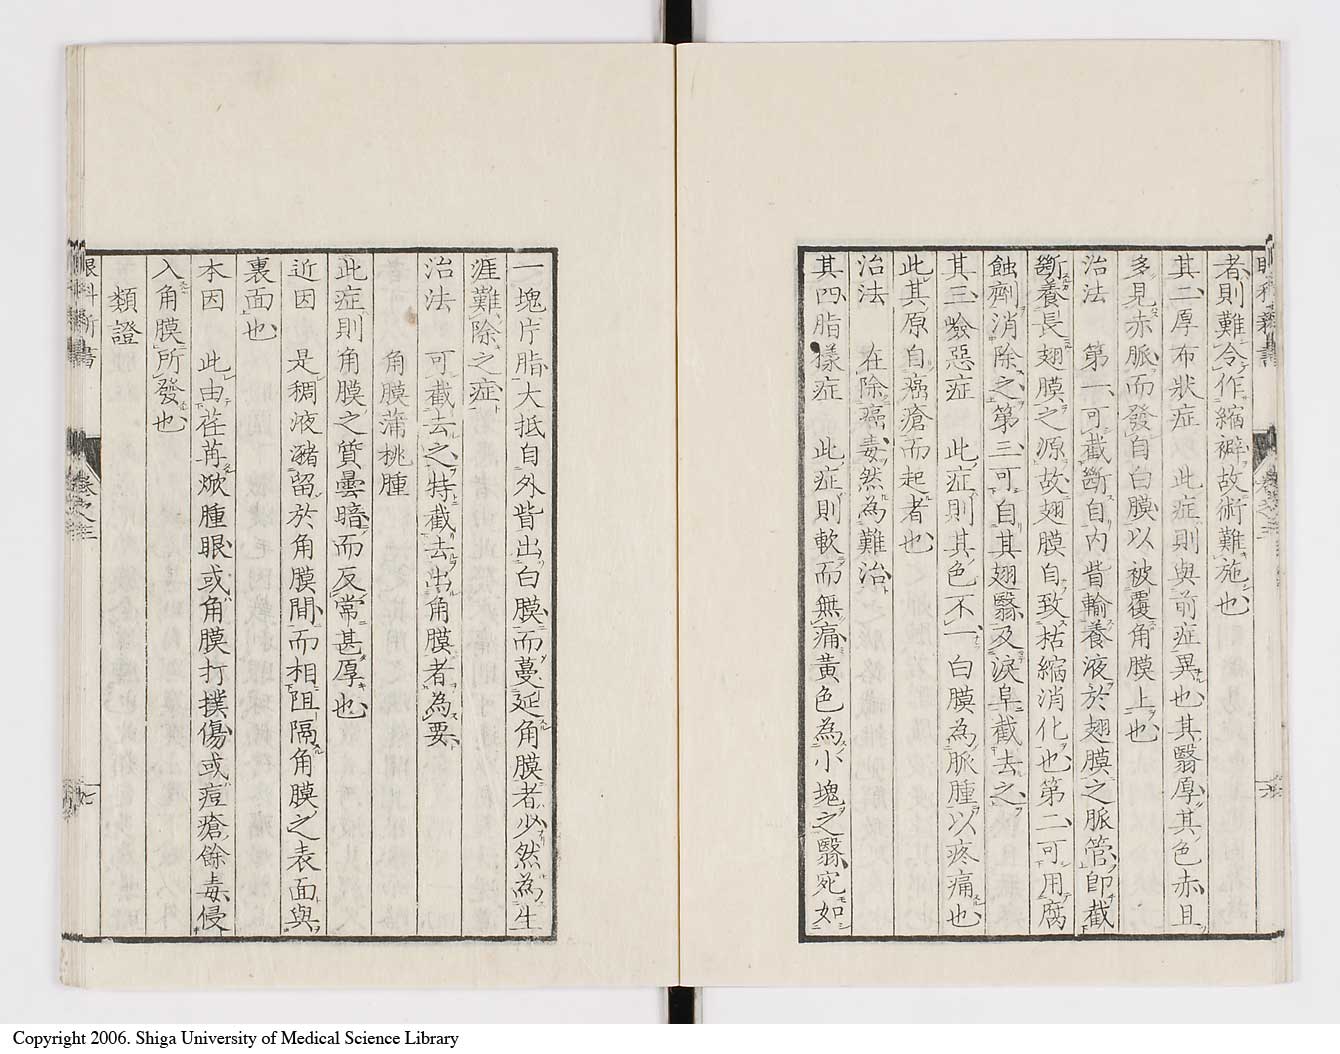 者則難令作縮襞故術難施也
其二厚布狀症 此症則與前症異也其翳厚其色赤且
多見赤脈而發自白膜以被覆角膜上也
治法 第一可截斷自內眥輸養液於翅膜之脈管卽截
斷養長翅膜之源故翅膜自致枯縮消化也第二可用腐
蝕劑消除之第三可自其翅翳及淚阜截去之
其三嶮惡症 此症則其色不一白膜為脈腫以疼痛也
此其原自癌瘡而起者也
治法 在除癌毒然為難治
其四脂樣症 此症則軟而無痛黃色為小塊之翳宛如
一塊片脂大抵自外眥出白膜而蔓延角膜者必然為生
涯難除之症
治法 可截去之特截去出角膜者為要
角膜蒲桃腫
此症則角膜之質曇暗而反常甚厚也
近因 是稠液瀦留於角膜間而相阻隔角膜之表面與
裏面也
本因 此由荏苒焮腫眼或角膜打撲傷或痘瘡餘毒侵
入角膜所發也
類證
眼科新書
卷之三
七
Copyright 2006. Shiga University of Medical Science Library